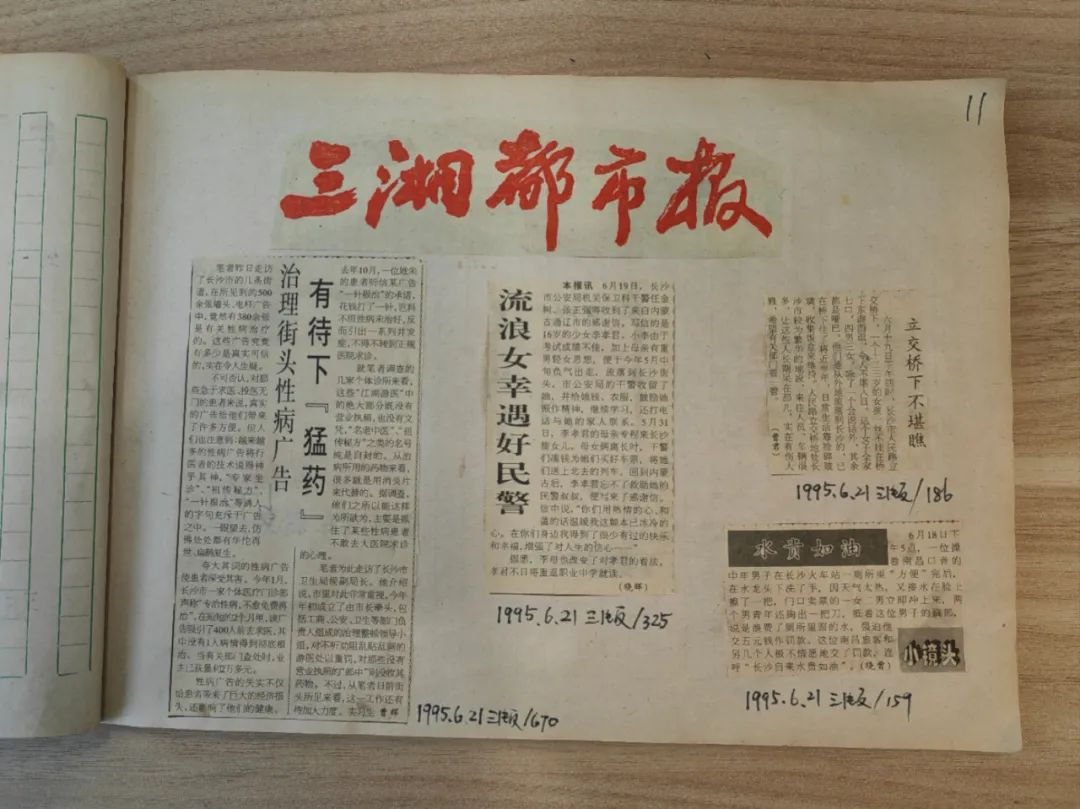 11
三湘都市报
治理街头性病广告
有待下『猛药』
笔者昨日走访
了长沙市的几条街
道,在所见到的500
余张墙头、电杆广告
中,竟然有380余张
是有关性病治疗
的。这些广告究竟
有多少是真实可信
的,实在令人生疑。
不可否认,对那
些急于求医、投医无
门的患者来说,真实
的广告给他们带来
了许多方便。但人
们也注意到:越来越
多的性病广告将行
医者的技术说得神
乎其神,“专家坐
诊”、“祖传秘方”、
“一针根治”等诱人
的字句充斥于广告
之中。一眼望去,仿
佛处处都有华佗再
世、扁鹊复生。
夸大其词的性病广告
使患者深受其害。今年1月,
长沙市一家个体医疗门诊部
声称“专治性病,不愈免费再
治”,在短短的2个月里,该广
告吸引了400余人前去求医,其
中没有1人病情得到彻底根
治。当有关部门查处时,业
主已获暴利2万多元。
性病广告的失实不仅
给患者带来了巨大的经济损
失,还影响了他们的健康。
去年10月,一位姓朱
的患者听信某广告
“一针根治”的承诺,
花钱打了一针,岂料
不但性病未治好,反
而引出一系列并发
症,不得不转到正规
医院求诊。
就笔者调查的
几家个体诊所来看,
这些“江湖游医”中
的绝大部分既没有
营业执照,也没有文
凭,“名老中医”、“祖
传秘方”之类的名号
纯是自封的。从治
病所用的药物来看,
很多就是用消炎片
来代替的。据调查,
他们之所以能这样
为所欲为,主要是抓
住了某些性病患者
不敢去大医院求诊
的心理。
笔者为此走访了长沙市
卫生局候副局长。他介绍
说,市里对此非常重视,今年
年初成立了由市长牵头,包
括工商、公安、卫生等部门负
责人组成的治理整顿领导小
组,对不听劝阻乱贴乱画的
游医处以重罚,对那些没有
营业执照的“郎中”则没收其
药物。不过,从笔者目前街
头所见来看,这一工作还有
待加大力度。实习生 曹辉
1995.6.21三版/670
流浪女幸遇好民警
本报讯 6月19日,长沙
市公安局机关保卫科干警任金
柯、张正强得收到了来自内蒙
古通辽市的感谢信。写信的是
16岁的少女李孝君。小李由于
考试成绩不佳,加上母亲有重
男轻女思想,便于今年5月中
旬负气出走,流落到长沙街
头。市公安局的干警收留了
她,并给她钱、衣服,鼓励她
振作精神,继续学习,还打电
话与她的家人联系。5月31
日,李孝君的母亲专程来长沙
接女儿。母女俩离长时,干警
们凑钱为她们买好车票,将她
们送上北去的列车。回到内蒙
古后,李孝君忘不了救助她的
民警叔叔,便写来了感谢信。
信中说,“你们用热情的心、和
蔼的话温暖我这颗本已冰冷的
心。在你们身边我得到了很少有过的快乐
和幸福,增强了对人生的信心……”
据悉,李母也改变了对孝君的看法,
孝君不日将重返职业中学就读。
(晓辉)
1995.6.21三版/325
立交桥下不堪瞧
六月十九日下午
交桥下,一个十二三岁的女孩一丝不挂在桥
下东游西逛,令人不堪入目。这个女子全家
七口,四男三女,除了一个会说话外,其余
都是哑巴。他们是从外地流落到长沙的,已
在桥下住了将近半年。日常生活靠捡
璃、收集饭菜来维持。人民路立交桥地处长
沙市较为繁华的地段,来往人员、车辆很
多,让这些人长期呆在那儿,实在有伤大
雅,希望有关部门管一管。
(曹辉)
1995.6.21三版/186
水贵如油
6月18日下
午5点,一位操
着南昌口音的
中年男子在长沙火车站一厕所里“方便”完后,
在水龙头下洗了手,因天气太热,又接水在脸上
擦了一把,门口卖票的一女二男立即冲上来,两
个男青年还掏出一把刀,抵着这位男子的胸部,
说是浪费了厕所里面的水,强迫他
交五元钱作罚款。这位南昌旅客和
另几个人极不情愿地交了罚款,连
呼“长沙自来水贵如油”。(晓曹)
小镜头
1995.6.21三版/159